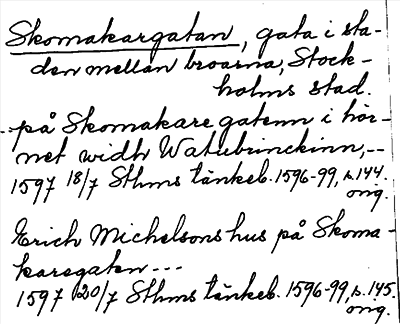 Skomakargatan, gata i sta-
den mellan broarna, Stock-
holms stad.
--på Skomakare gatenn i hör-
net widh Watubrinckinn,--
1597 18/7 Sthms tänkeb. 1596-99, s. 144.
orig.
Erich Michelsons hus på Skoma-
karegaten ---
1597 20/7 Sthms tänkeb. 1596-99, s. 145.
orig.